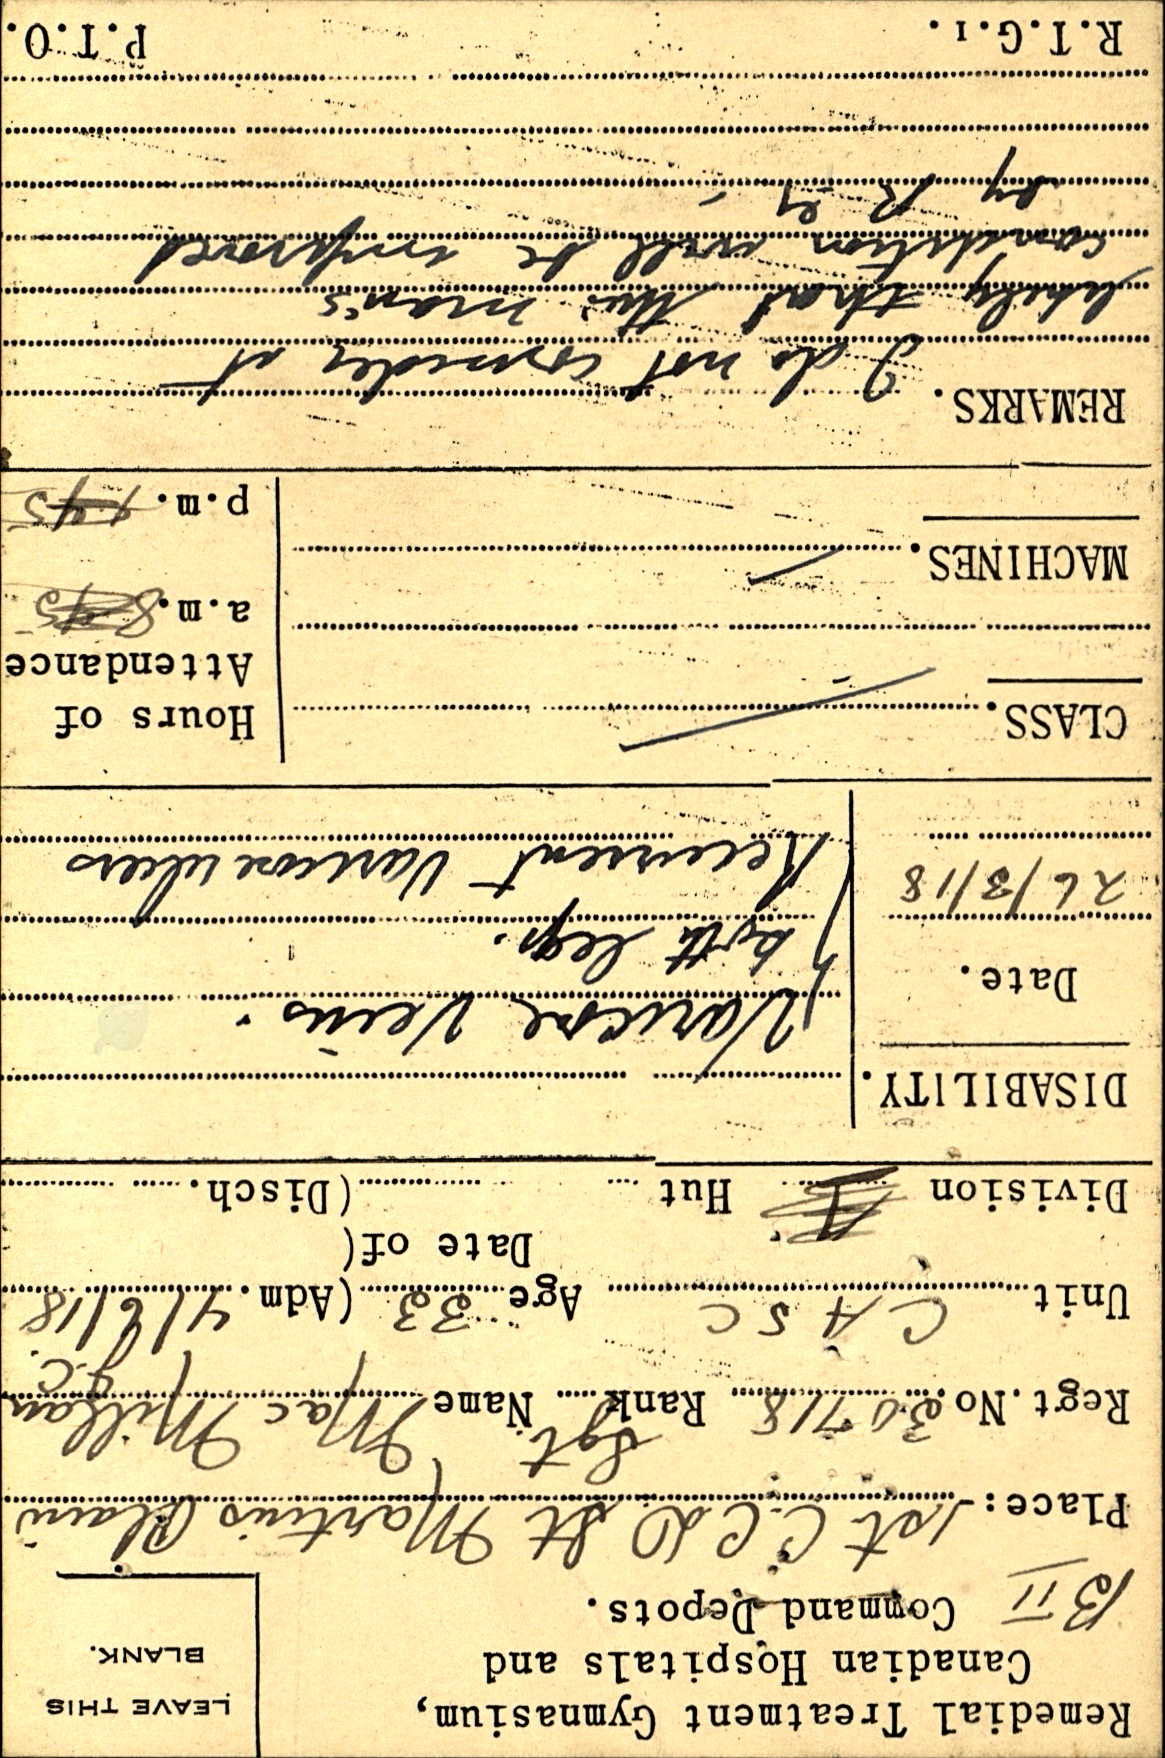 Remedial Treatment Gymnasium,
Canadian Hospitals and
Command Depots.
LEAVE THIS
BLANK.
B II
Place: 1st C.C.D. St Martins Plain
Regt. No. 30718 Rank Sgt Name MacMillan J.C.
Unit C A S C Age 33 (Adm. 4/6/18
Date of(
Division Hut (Disch.
DISABILITY.
Date.
26/8/18
Varicose Veins.
both legs.
Recurrent Varicose ulcers
CLASS.
MACHINES.
Hours of
Attendance
a.m. 8 45
p.m. 1 45
REMARKS. I do not consider it
likely that this man's
condition will be improved
by R G
R.T.G.1. P.T.O.